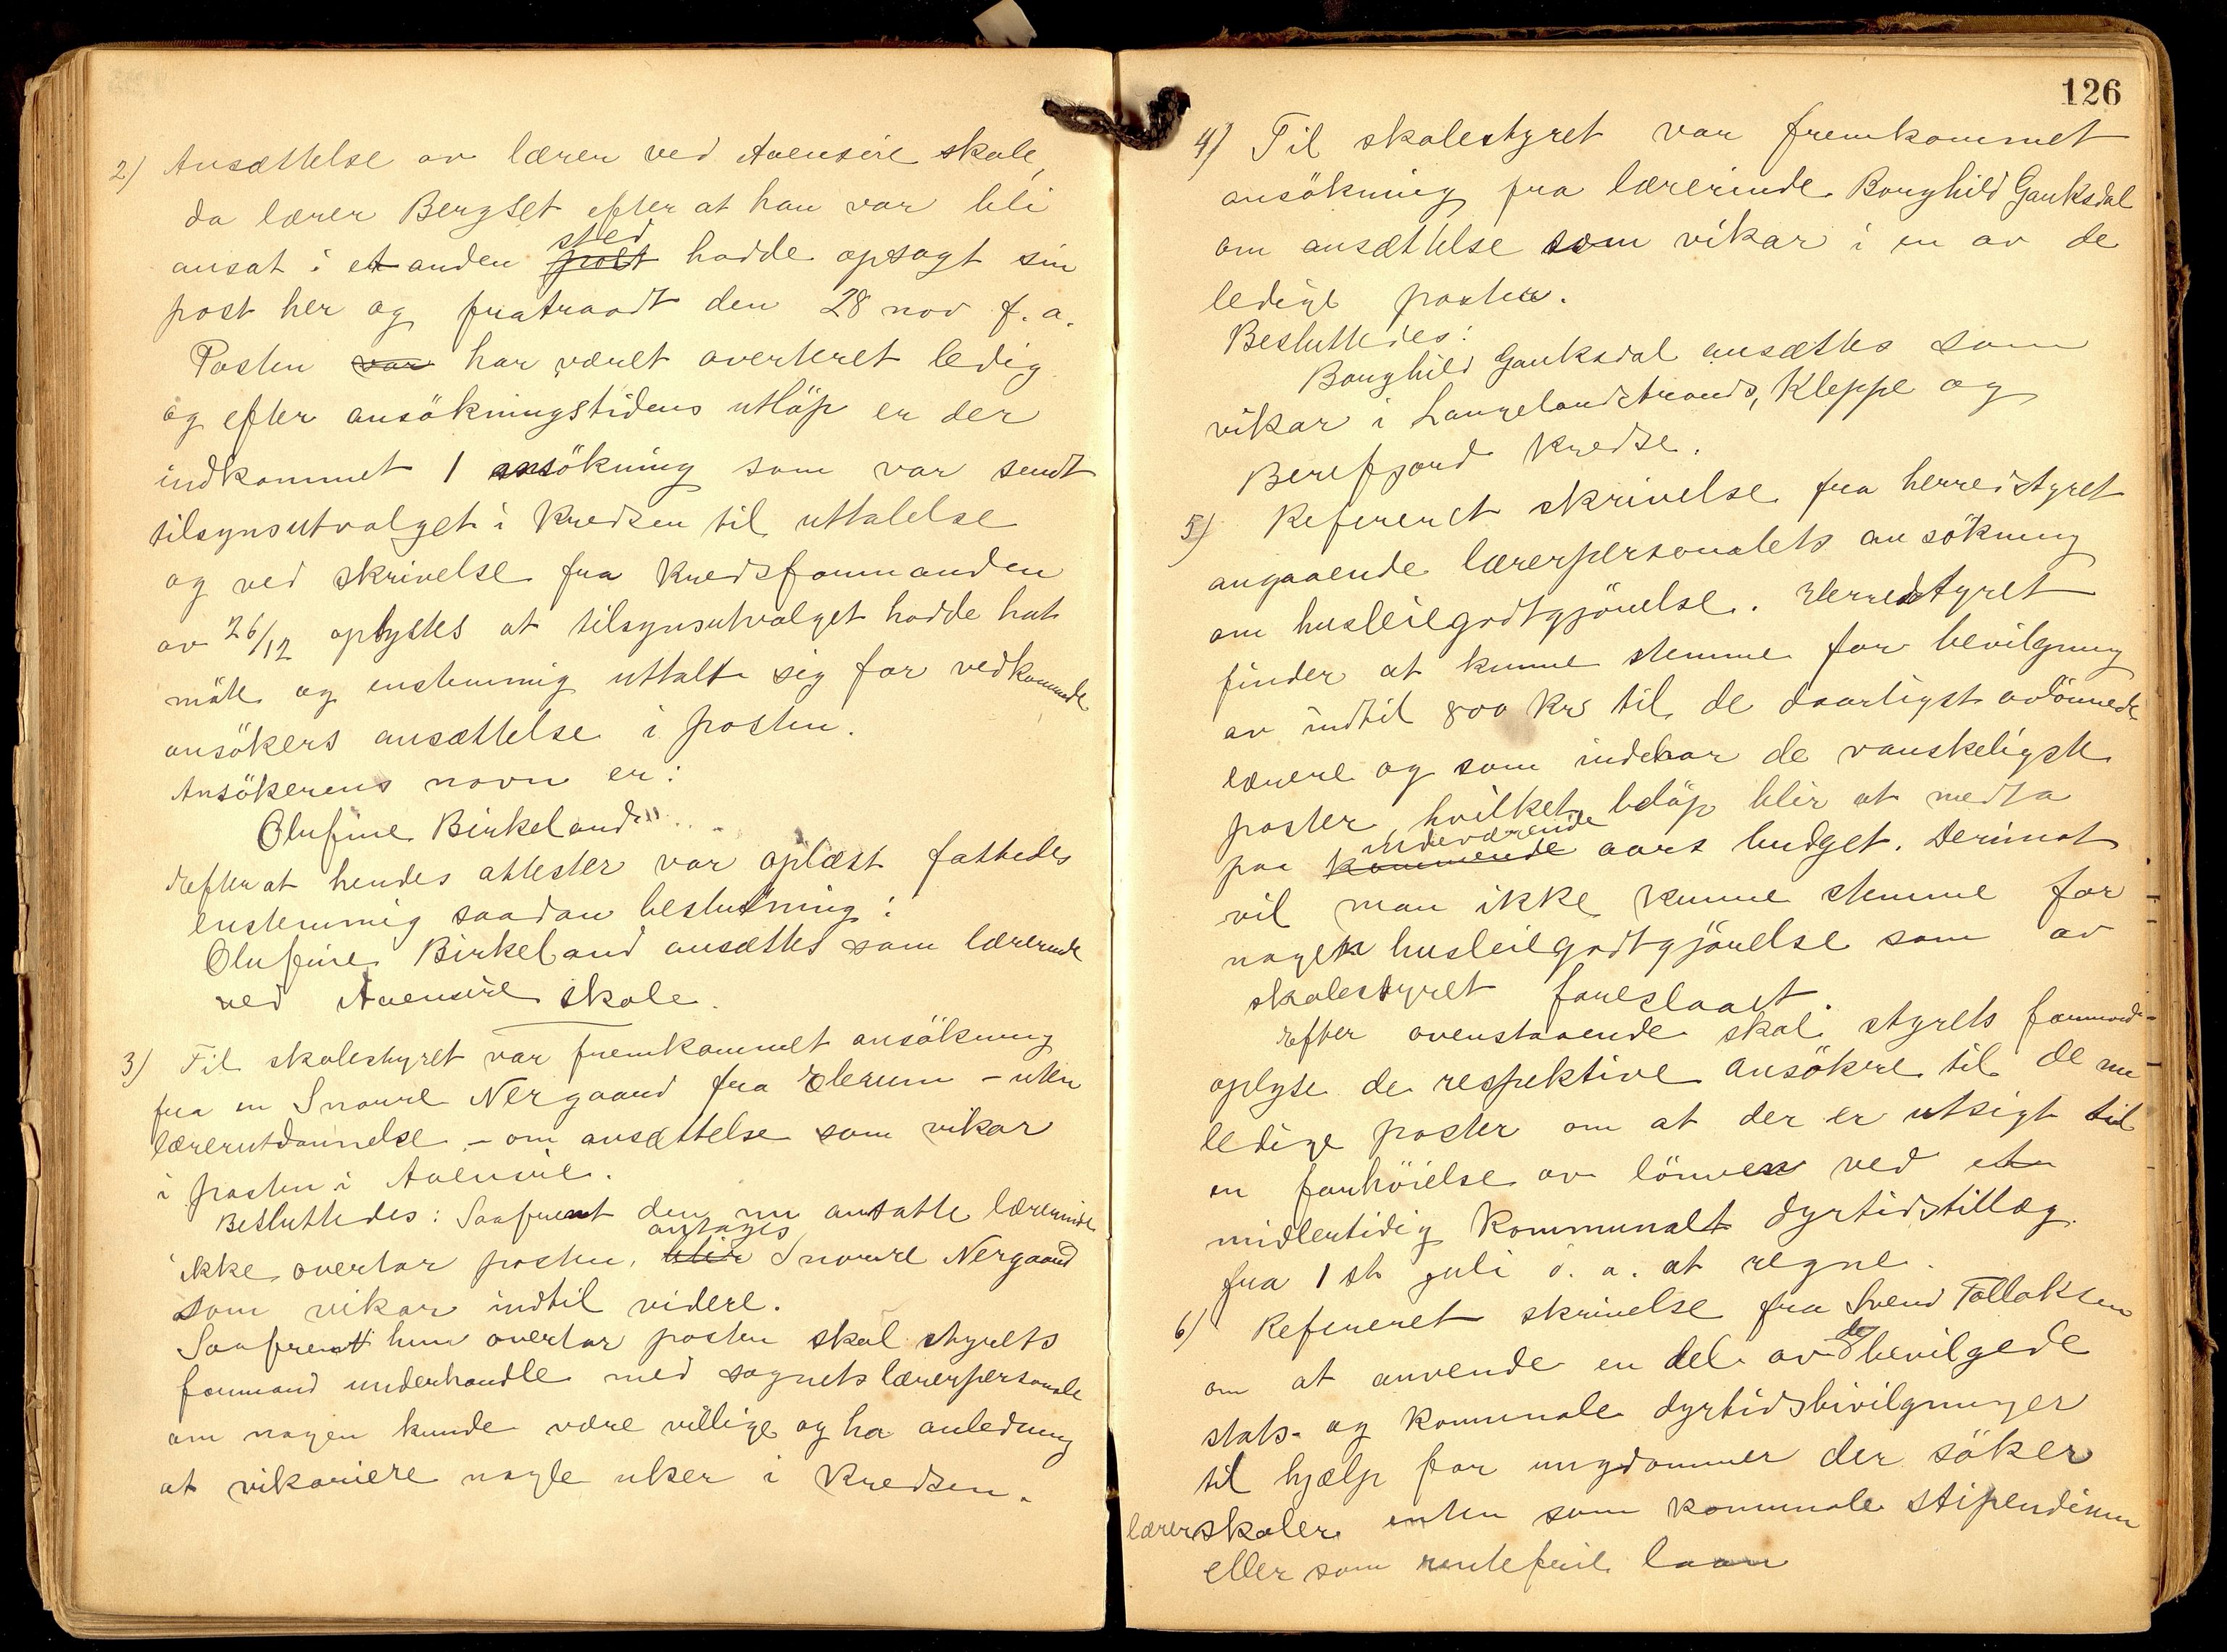 2) Ansættelse av lærer ved Avensire skole,
da lærer Bergset efter at han var bli
ansat i et anden sted
post hadde opsagt sin
post her og fratraadt den 28 nov f. a.
Posten var har været averteret ledig
og efter ansökningstidens utlöp er der
indkommet 1 ansökning som var sendt
tilsynsutvalget i Kredsen til uttalelse
og ved skrivelse fra Kredsformanden
av 26/12 oplystes at tilsynsutvalget hadde hat
möte og enstemmig uttalt sig for vedkommende
ansökers ansættelse i posten.
Ansökerens navn er:
Olufine Birkeland
Efter at hendes attester var oplæst fattedes
enstemmig saadan beslutning:
Olufine Birkeland ansættes som lærerinde
ved Avensire skole.
3) Til skolestyret var fremkommet ansökning
fra en Snorre Nergaard fra Elverum - uten
lærerutdannelse - om ansættelse som vikar
i posten i Avensire.
Besluttedes: Saafremt den nu ansatte lærerinde
ikke overtar posten, antages
blir Snorre Nergaard
som vikar indtil videre.
Saafremt hun overtar posten skal styrets
formand underhandle med sognets lærerpersonale
om nogen kunde være villige og ha anledning
at vikariere nogle uker i Kredsen.
126
4) Til skolestyret var fremkommet
ansökning fra lærerinde Borghild Gauksdal
om ansættelse som vikar i en av de
ledige poster.
Besluttedes:
Borghild Gauksdal ansættes som
vikar i Langelandstrands, Kleppe og
Berefjord Kredse.
5) Referert skrivelse fra herredstyret
angaaende lærerpersonalets ansökning
om husleiegodtgjörelse. Herredstyret
finder at kunne stemme for bevilgning
av indtil 800 Krs til de daarligst avlönnede
lærere og som indehar de vanskeligste
poster, hvilket belöp blir at medta
paa indeværende
kommende aars budget. Derimot
vil man ikke kunne stemme for
nogen husleiegodtgjörelse som av
skolestyret foreslaaet.
Efter ovenstaaende skal styrets formand
oplyse de respektive ansökere til de nu
ledige poster om at der er utsigt til
en forhöielse av lönnen ved et
midlertidig Kommunalt dyrtidstillæg
fra 1ste juli d. a. at regne.
6) Refereret skrivelse fra Svend Tollaksen
om at anvende en del av de bevilgede
stats- og Kommunale dyrtidsbivilgninger
til hjælp for ungdommer der söker
lærerskoler enten som kommunale stipendium
eller som rentefrie laan